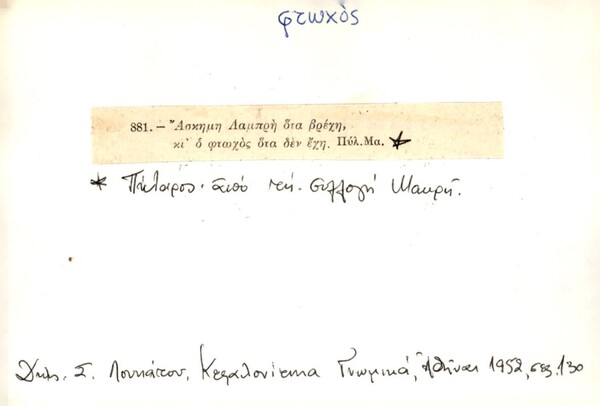 φτωχὸς
881. – Ἄσκημη Λαμπρὴ ὅτα βρέχη,
κι' ὁ φτωχὸς ὅτα δὲν ἔχη. Πύλ.Μα. *
* Πύλαρος. ἀπό τή συλλογή Μακρῆ.
Δημ. Σ. Λουκάτου, Κεφαλονίτικα Γνωμικά, Ἀθῆναι 1952, σελ. 130